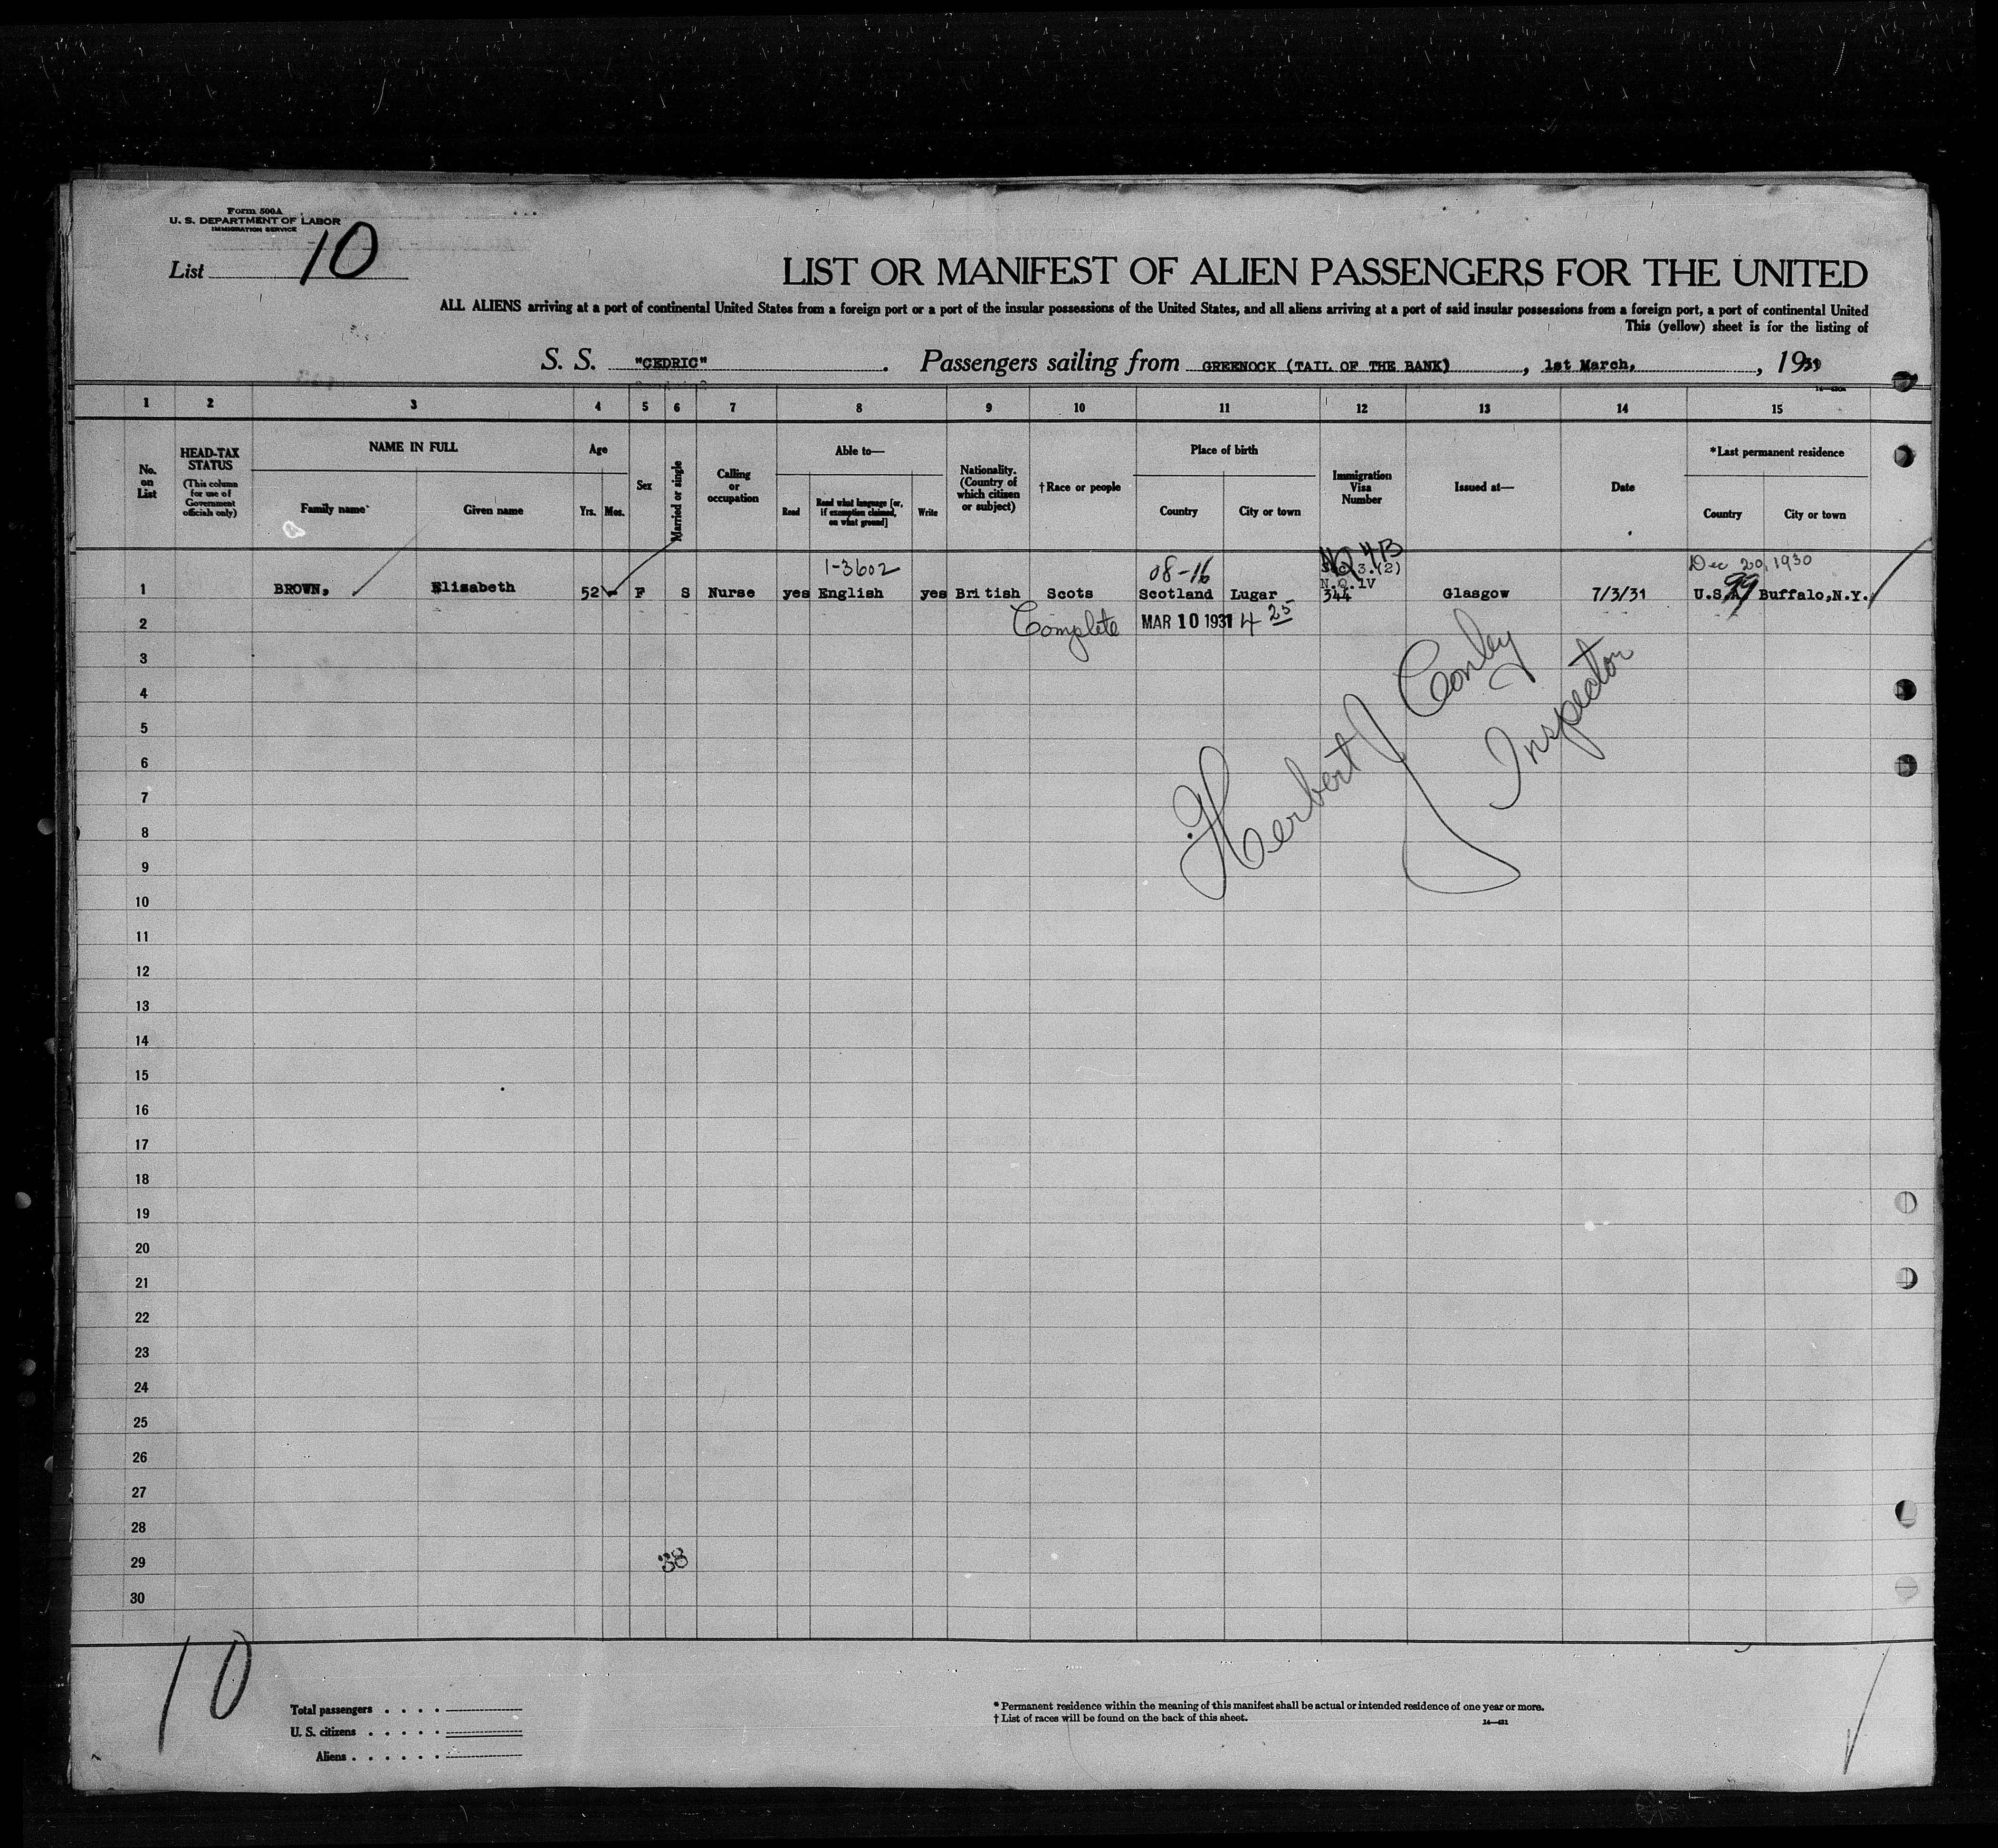 Form 500A
U. S. DEPARTMENT OF LABOR
IMMIGRATION SERVICE
List 10
LIST OR MANIFEST OF ALIEN PASSENGERS FOR THE UNITED
ALL ALIENS arriving at a port of continental United States from a foreign port or a port of the insular possessions of the United States, and all aliens arriving at a port of said insular possessions from a foreign port, a port of continental United
This (yellow) sheet is for the listing of
S. S. "CEDRIC". Passengers sailing from GREENOCK (TAIL OF THE BANK), 1st March, , 1931
1 2 3 4 5 6 7 8 9 10 11 12 13 14 15
No. on List
HEAD-TAX STATUS
(This column for use of Government officials only)
NAME IN FULL
Family name
Given name
Age
Yrs. Mos.
Sex
Married or single
Calling or occupation
Able to—
Read
Read what language [or, if exemption claimed, on what ground]
Write
Nationality. (Country of which citizen or subject)
†Race or people
Place of birth
Country
City or town
Immigration Visa Number
Issued at—
Date
*Last permanent residence
Country
City or town
1-3602 08-16 4B Dec 20, 1930
Sec 3.(2)
N.Q.IV
1 BROWN, Elizabeth 52 - F S Nurse yes English yes British Scots Scotland Lugar 344 Glasgow 7/3/31 U.S.A. 99 Buffalo,N.Y.
2 Complete MAR 10 1931 4 25
3
4
5
6
7
8
9
10
11
12
13
14
15
16
17
18
19
20
21
22
23
24
25
26
27
28
29 38
30
Herbert J Conley
Inspector
10
Total passengers . . . .
U. S. citizens . . . . .
Aliens . . . . . .
* Permanent residence within the meaning of this manifest shall be actual or intended residence of one year or more.
† List of races will be found on the back of this sheet.
14—431